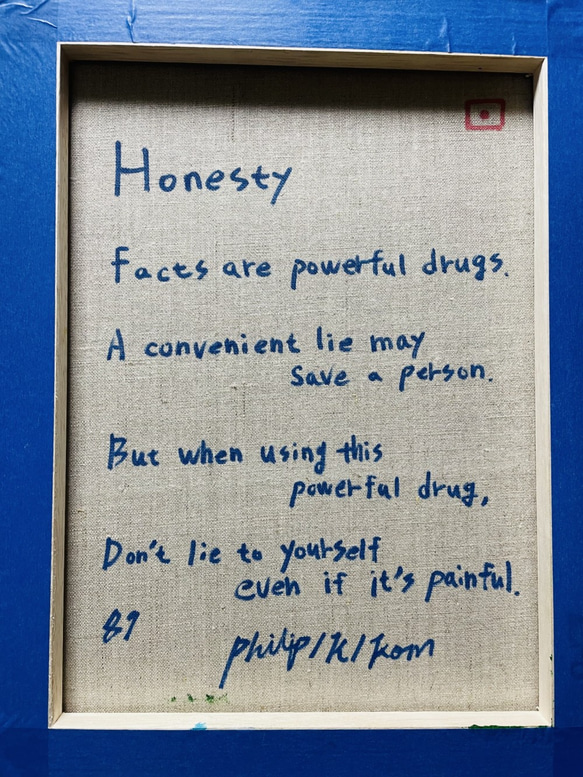 Honesty
Facts are powerful drugs.
A convenient lie may
save a person.
But when using this
powerful drug,
Don't lie to yourself
even if it's painful.
89
philip/k/kom